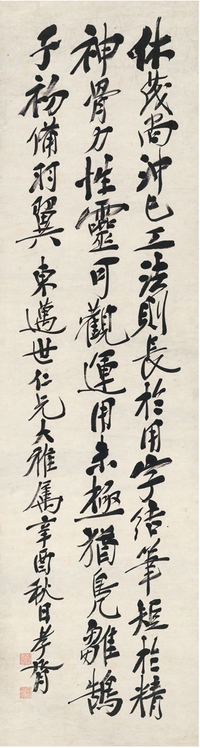 休茂尚冲已工法則長於用字結筆短於精
神骨力性靈可觀運用未極猶鳧雛鵠
子初備羽翼 東邁世仁兄大雅屬辛酉秋日孝胥